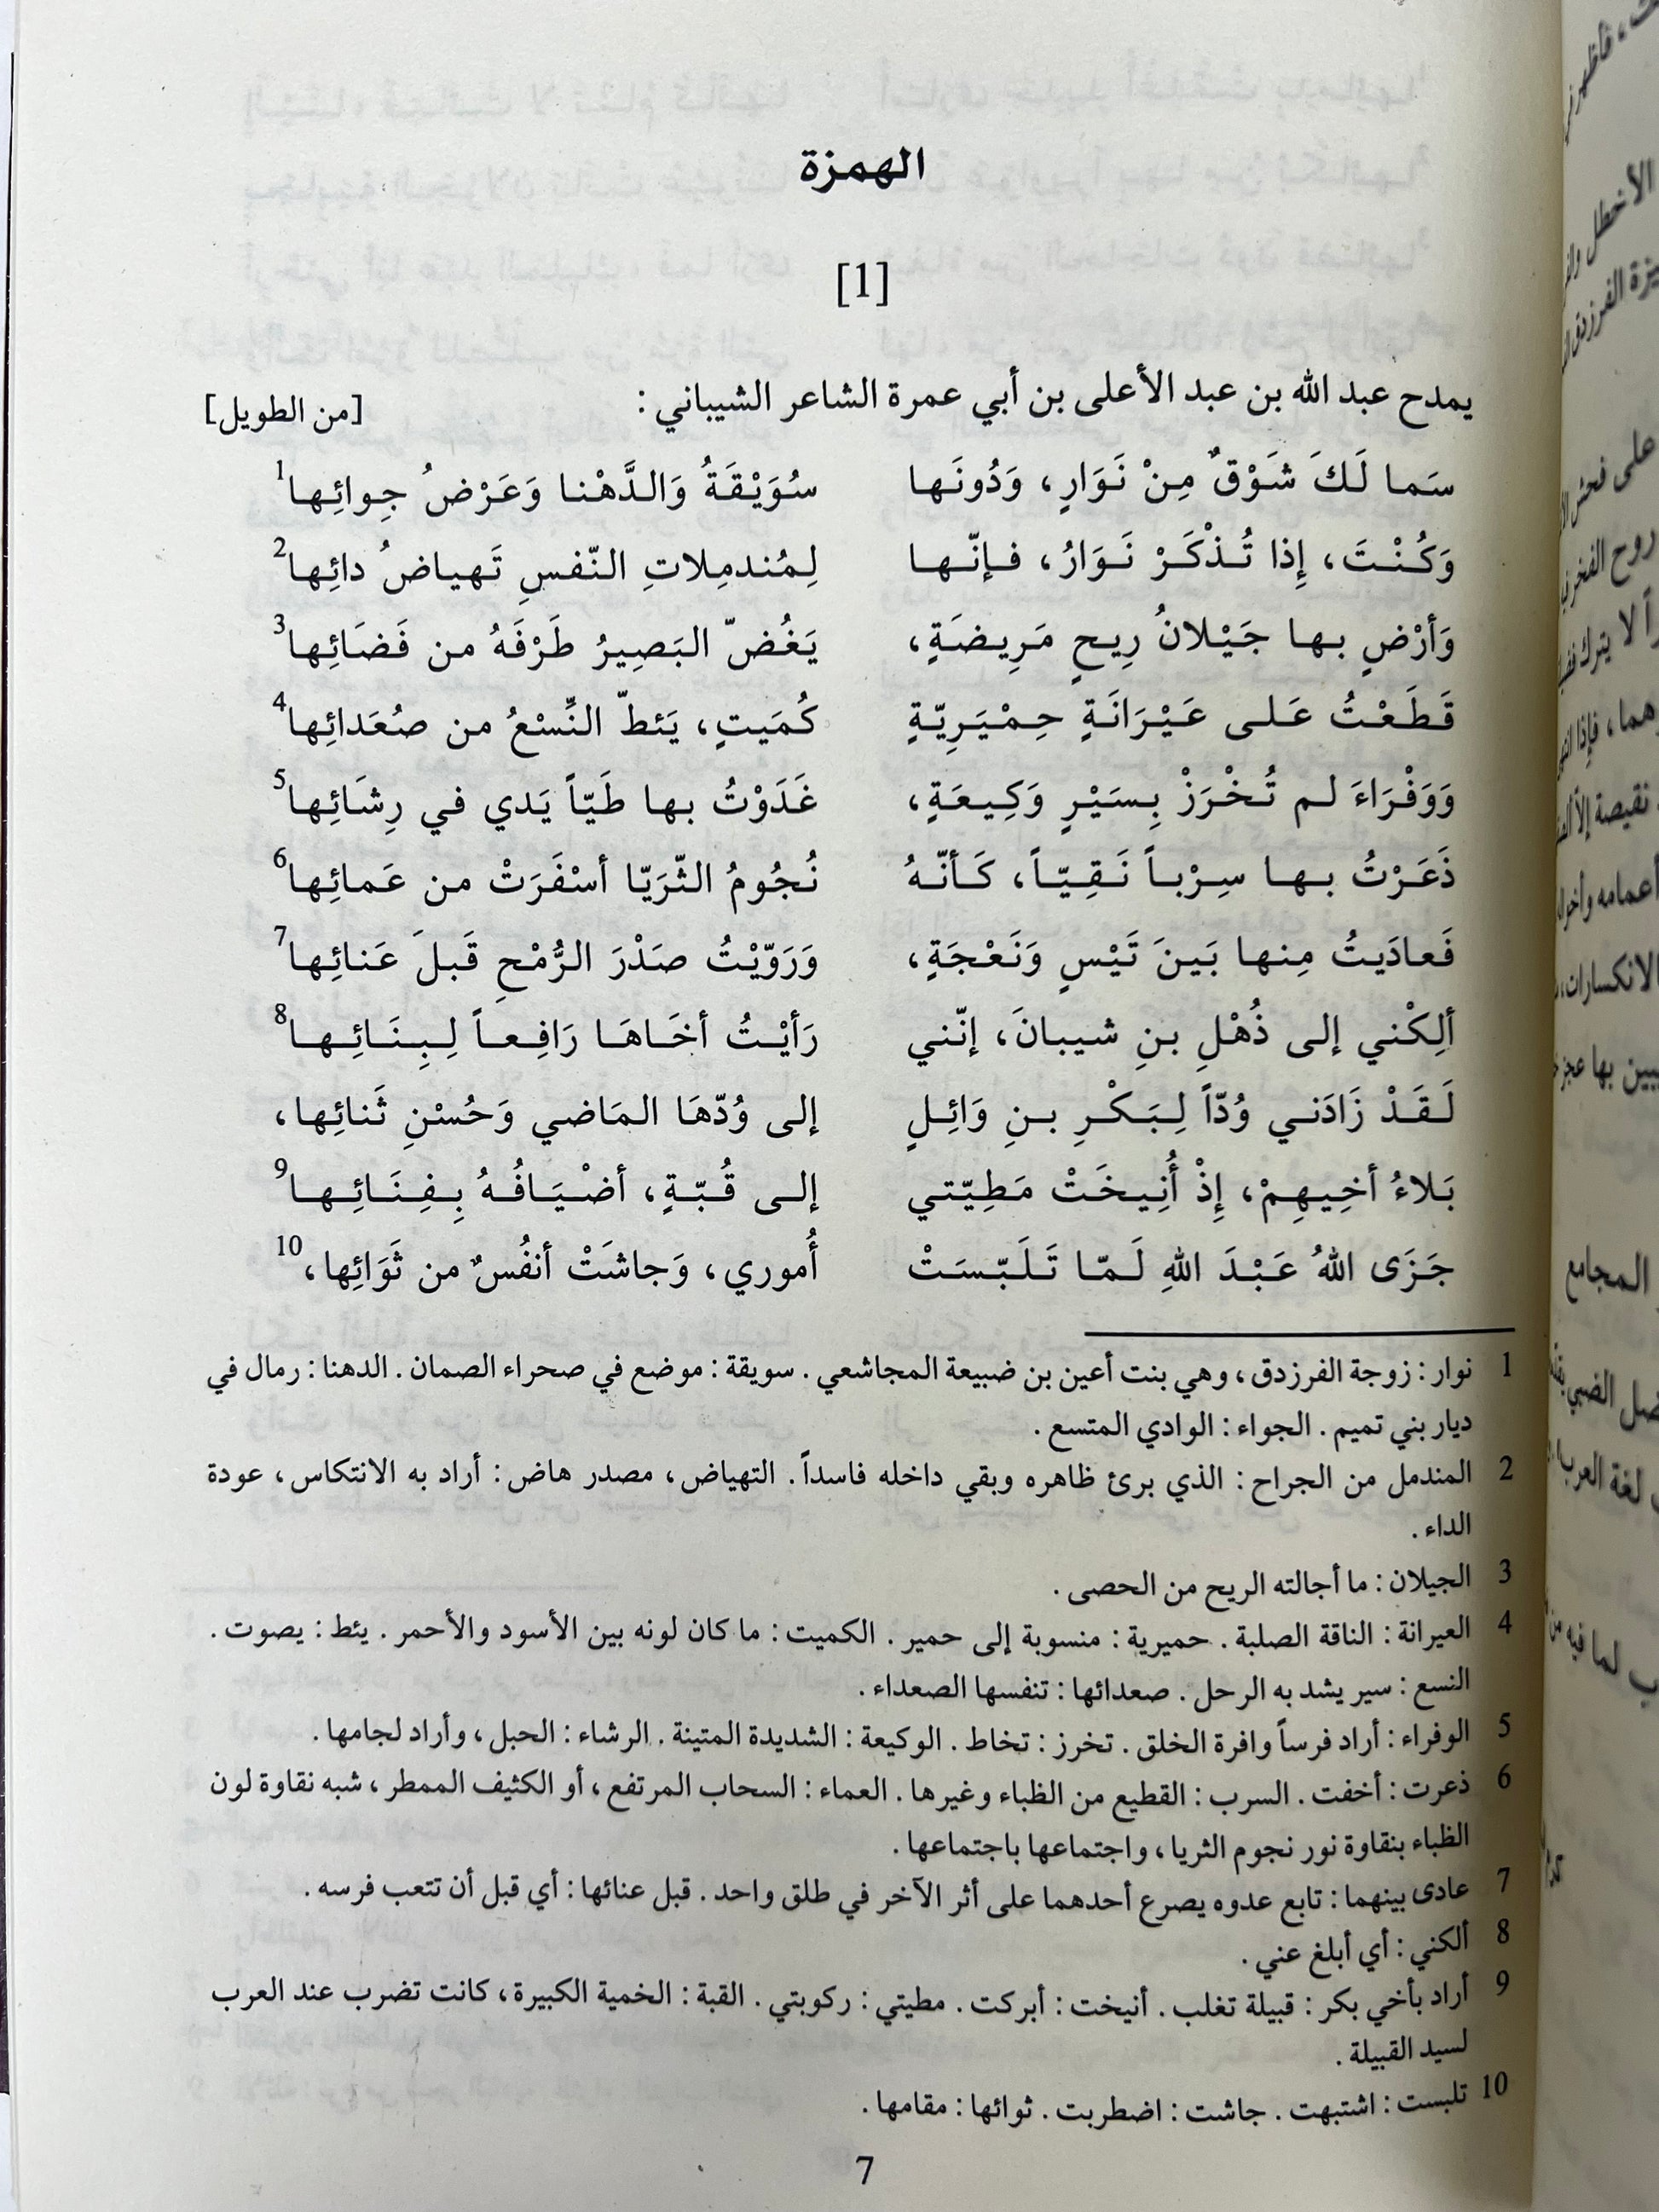 الهمزة
[1]
يمدح عبد الله بن عبد الأعلى بن أبي عمرة الشاعر الشيباني : [من الطويل]
سَما لَكَ شَوْقٌ مِنْ نَوَارِ ، وَدُونَها سُوَيْقَةُ وَالدَّهْنا وَعَرْضُ جِوائِها1
وَكُنْتَ ، إِذا تُذْكَرْ نَوَارُ ، فإنّها لِمُندمِلاتِ النّفسِ تَهياضُ دائِها2
وَأرْضٍ بها جَيْلانُ رِيحٍ مَرِيضَةٍ ، يَغُضّ البَصِيرُ طَرْفَهُ من فَضَائِها3
قَطَعْتُ عَلى عَيْرَانَةٍ حِمْيَرِيّةٍ كُمَيتٍ ، يَئطّ النِّسْعُ من صُعَدائِها4
وَوَفْرَاءَ لم تُخْرَزْ بِسَيْرٍ وَكِيعَةٍ ، غَدَوْتُ بها طَيّاً يَدي في رِشَائِها5
ذَعَرْتُ بها سِرْباً نَقِيّاً ، كَأنّهُ نُجُومُ الثّرَيّا أسْفَرَتْ من عَمائِها6
فَعادَيتُ مِنها بَينَ تَيْسٍ وَنَعْجَةٍ ، وَرَوّيْتُ صَدْرَ الرُّمْحِ قَبلَ عَنائِها7
ألِكْني إلى ذُهْلِ بنِ شيبانَ ، إنّني رَأيْتُ أخَاهَا رَافِعاً لِبِنَائِها8
لَقَدْ زَادَني وُدّاً لِبَكْرِ بنِ وَائِلٍ إلى وُدّهَا المَاضي وَحُسْنِ ثَنائِها ،
بَلاءُ أخِيهِمْ ، إِذْ أُنِيخَتْ مَطِيّتي إلى قُبّةٍ ، أضْيَافُهُ بِفِنَائِها9
جَزَى اللهُ عَبْدَ اللهِ لَمّا تَلَبّسَتْ أُموري ، وَجاشَتْ أنفُسٌ من ثَوَائِها ،10
1 نوار : زوجة الفرزدق ، وهي بنت أعين بن ضبيعة المجاشعي . سويقة : موضع في صحراء الصمان . الدهنا : رمال في
ديار بني تميم . الجواء : الوادي المتسع .
2 المندمل من الجراح : الذي برئ ظاهره وبقي داخله فاسداً . التهياض ، مصدر هاض : أراد به الانتكاس ، عودة
الداء .
3 الجيلان : ما أجالته الريح من الحصى .
4 العيرانة : الناقة الصلبة . حميرية : منسوبة إلى حمير . الكميت : ما كان لونه بين الأسود والأحمر . يئط : يصوت .
النسع : سير يشد به الرحل . صعدائها : تنفسها الصعداء .
5 الوفراء : أراد فرساً وافرة الخلق . تخرز : تخاط . الوكيعة : الشديدة المتينة . الرشاء : الحبل ، وأراد لجامها .
6 ذعرت : أخفت . السرب : القطيع من الظباء وغيرها . العماء : السحاب المرتفع ، أو الكثيف الممطر ، شبه نقاوة لون
الظباء بنقاوة نور نجوم الثريا ، واجتماعها باجتماعها .
7 عادى بينهما : تابع عدوه يصرع أحدهما على أثر الآخر في طلق واحد . قبل عنائها : أي قبل أن تتعب فرسه .
8 ألكني : أي أبلغ عني .
9 أراد بأخي بكر : قبيلة تغلب . أنيخت : أبركت . مطيتي : ركوبتي . القبة : الخمية الكبيرة ، كانت تضرب عند العرب
لسيد القبيلة .
10 تلبست : اشتبهت . جاشت : اضطربت . ثوائها : مقامها .
7
الأخطل
على فحش
روح الفخر
المجامع